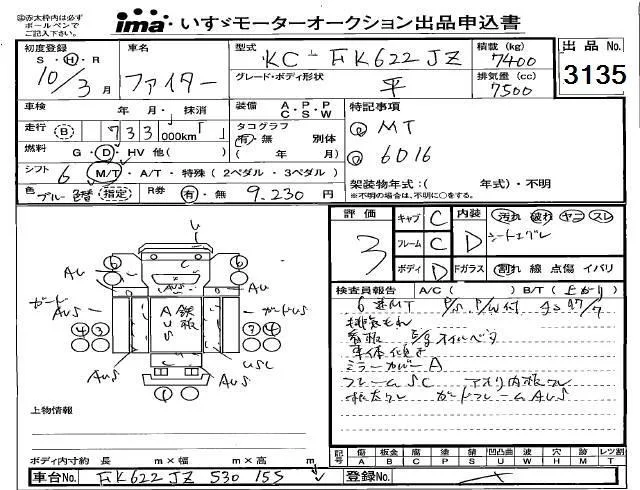 ima いすゞモーターオークション出品申込書
※赤太枠内は必ず
ボールペンで
ご記入下さい。
初度登録
S・H・R
10/3月
車名
ファイター
型式
KC-FK622JZ
グレード・ボディ形状
平
積載 (kg)
7400
排気量 (cc)
7500
出品 No.
3135
車検
年 月・抹消
走行 B 733 000km「 」
燃料
G・D・HV 他( )
シフト
6 M/T・A/T・特殊 (2ペダル・3ペダル)
色
ブルー 替 指定
R券
有・無 9.230円
装備
A・P・P
C・S・W
タコグラフ
有・無 別体
( 年 月)
特記事項
MT
6016
架装物年式:( 年式)・不明
※不明の場合は、不明に○をする。
評価
3
キャブ C
フレーム C
ボディ D
内装 D
汚れ 破れ ヤニ スレ
Fガラス
割れ 線 点傷 イバリ
検査員報告
A/C( ) B/T(上がり)
6速MT P/S P/W付
排気もれ
看板 オイルベタ
車体傾き
ミラーカバーA
フレームSC アオリ内板ワレ
ガードフレームAUS
U
6
6
C
AU
AUS
AU
ガード
AUS
鉄板
AUS
ガードUS
4
3
7
4
C
USC
AUS
AUS
上物情報
ボディ内寸約 長 m×幅 m×高 m
記号
傷 A
板金 B
腐 C
塗 P
錆 S
凹凸曲 U
波 W
穴 H
跡 M
レツ割 T
車台No.
FK622JZ 530155
登録No.